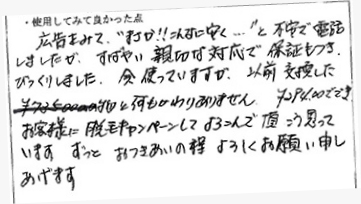 ・使用してみて良かった点
広告をみて、"まさか!!こんなに安く…"と不安で電話
しましたが、すばやい 親切な対応で 保証もつき、
びっくりしました。今 使っていますが、以前 交換した
と何もかわりありません。
お客様に 脱毛キャンペーンして よろこんで頂こう思って
います ずっと おつきあいの程 よろしくお願い申し
あげます